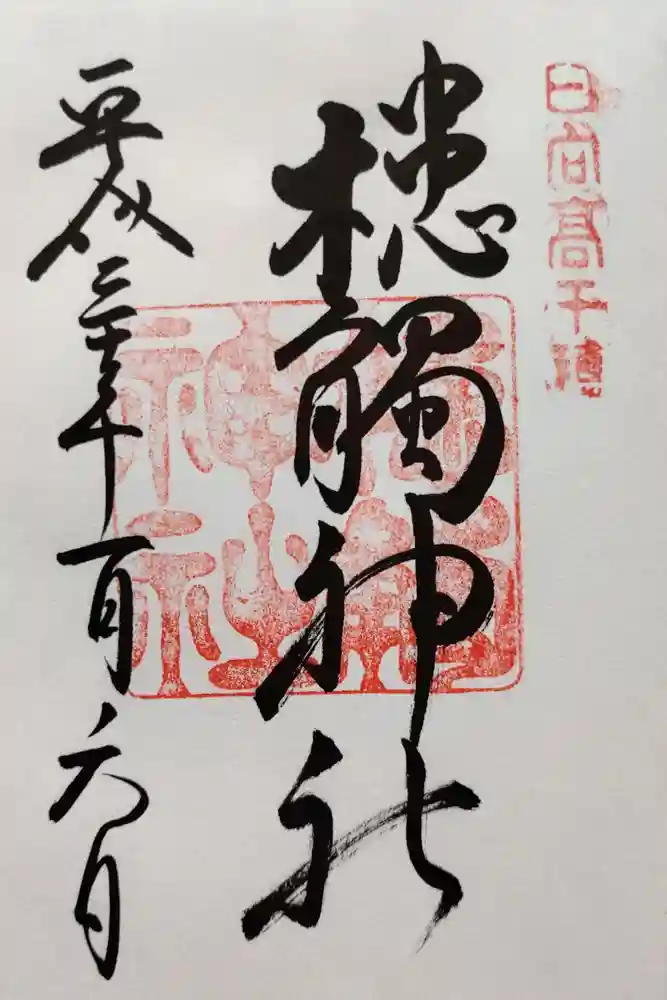 日向高千穂
槵觸神社
槵觸神社
平成三十年一月六日